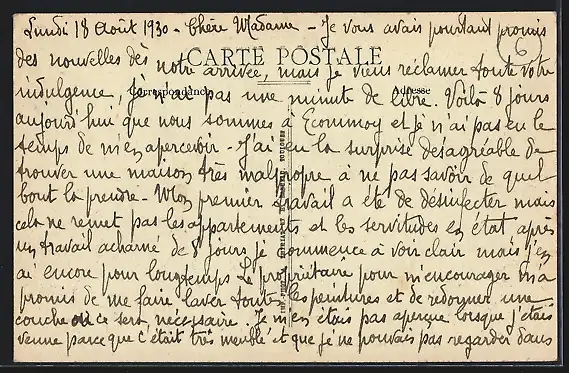 Lundi 18 Août 1930 - Chère Madame - Je vous avais pourtant promis
des nouvelles dès notre arrivée, mais je viens réclamer toute votre
CARTE POSTALE
Correspondance
Adresse
indulgence, je n'ai pas une minute de libre. Voilà 8 jours
aujourd'hui que nous sommes à Ecommoy et je n'ai pas eu le
temps de m'en apercevoir - J'ai eu la surprise désagréable de
trouver une maison très malpropre à ne pas savoir de quel
bout la prendre - Mon premier travail a été de désinfecter mais
cela ne remet pas les appartements et les servitudes en état après
un travail acharné de 8 jours je commence à voir clair mais j'en
ai encore pour longtemps Le propriétaire pour m'encourager m'a
promis de me faire laver toutes les peintures et de redonner une
couche où ce sera nécessaire. Je m'en étais pas aperçue lorsque j'étais
venue parce que c'était très meublé et que je ne pouvais pas regarder dans